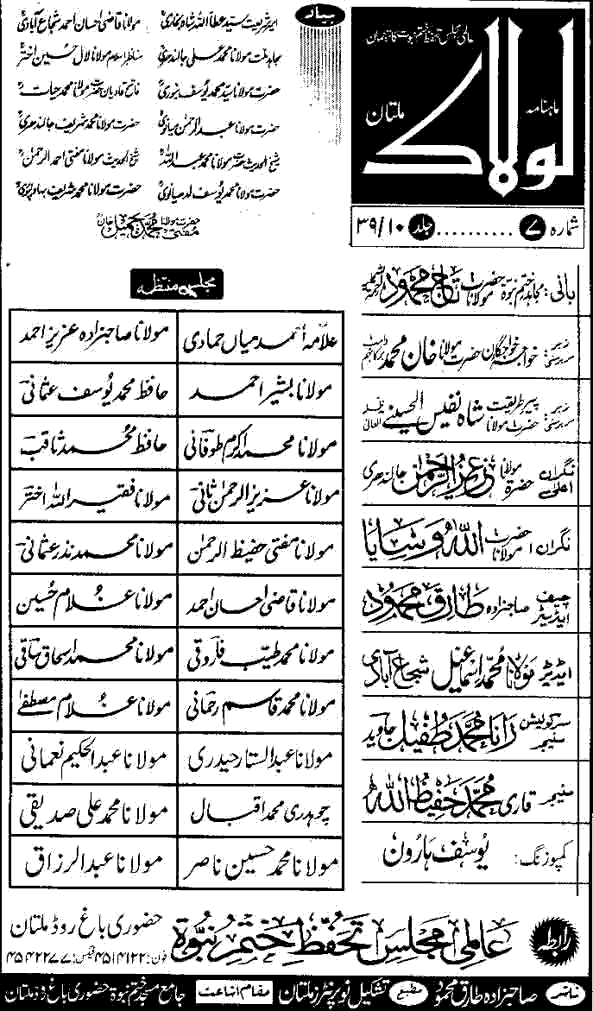 عالمی مجلس تحفظ ختم نبوت کا ترجمان
ماہنامہ
لولاک
ملتان
شمارہ ۷ .......... جلد ۳۹/۱۰
بیاد
امیر شریعت سید عطا اللہ شاہ بخاریؒ
مولانا قاضی احسان احمد شجاع آبادیؒ
مجاہد ملت مولانا محمد علی جالندھریؒ
مناظر اسلام مولانا لال حسین اخترؒ
حضرت مولانا سید محمد یوسف بنوریؒ
فاتح قادیان حضرت مولانا محمد حیاتؒ
حضرت مولانا عبدالرحمن میانویؒ
حضرت مولانا محمد شریف جالندھریؒ
شیخ الحدیث حضرت مولانا محمد عبداللہؒ
شیخ الحدیث مولانا مفتی احمد الرحمنؒ
حضرت مولانا محمد یوسف لدھیانویؒ
حضرت مولانا محمد شریف بہاولپوریؒ
حضرت مولانا مفتی محمد جمیل خانؒ
بانی: مجاہد ختم نبوۃ حضرت مولانا تاج محمود رحمۃ اللہ علیہ
زیر سرپرستی: خواجہ خواجگان حضرت مولانا خان محمد دامت برکاتہم
زیر سرپرستی: پیر طریقت حضرت مولانا شاہ نفیس الحسینی مدظلہ العالی
نگران اعلیٰ: حضرۃ مولانا عزیز الرحمن جالندھری
نگران: حضرت مولانا اللہ وسایا
چیف ایڈیٹر: صاحبزادہ طارق محمود
ایڈیٹر: مولانا محمد اسماعیل شجاع آبادی
سرکولیشن منیجر: رانا محمد طفیل جاوید
منیجر: قاری محمد حفیظ اللہ
کمپوزنگ: یوسف ہارون
مجلس منتظمہ
علامہ احمد میاں حمادی
مولانا صاحبزادہ عزیز احمد
مولانا بشیر احمد
حافظ محمد یوسف عثمانی
مولانا محمد اکرم طوفانی
حافظ محمد ثاقب
مولانا عزیز الرحمن ثانی
مولانا فقیر اللہ اختر
مولانا مفتی حفیظ الرحمن
مولانا محمد نذر عثمانی
مولانا قاضی احسان احمد
مولانا غلام حسین
مولانا محمد طیب فاروقی
مولانا محمد اسحاق ساقی
مولانا محمد قاسم رحمانی
مولانا غلام مصطفے
مولانا عبدالستار حیدری
مولانا عبدالحکیم نعمانی
چوہدری محمد اقبال
مولانا محمد علی صدیقی
مولانا محمد حسین ناصر
مولانا عبدالرزاق
رابطہ
عالمی مجلس تحفظ ختم نبوۃ
حضوری باغ روڈ ملتان
فون: ۴۵۱۴۱۲۲ فیکس: ۴۵۴۲۲۷۷
ناشر صاحبزادہ طارق محمود مطبع تشکیل نو پرنٹرز ملتان مقام اشاعت جامع مسجد ختم نبوۃ حضوری باغ روڈ ملتان